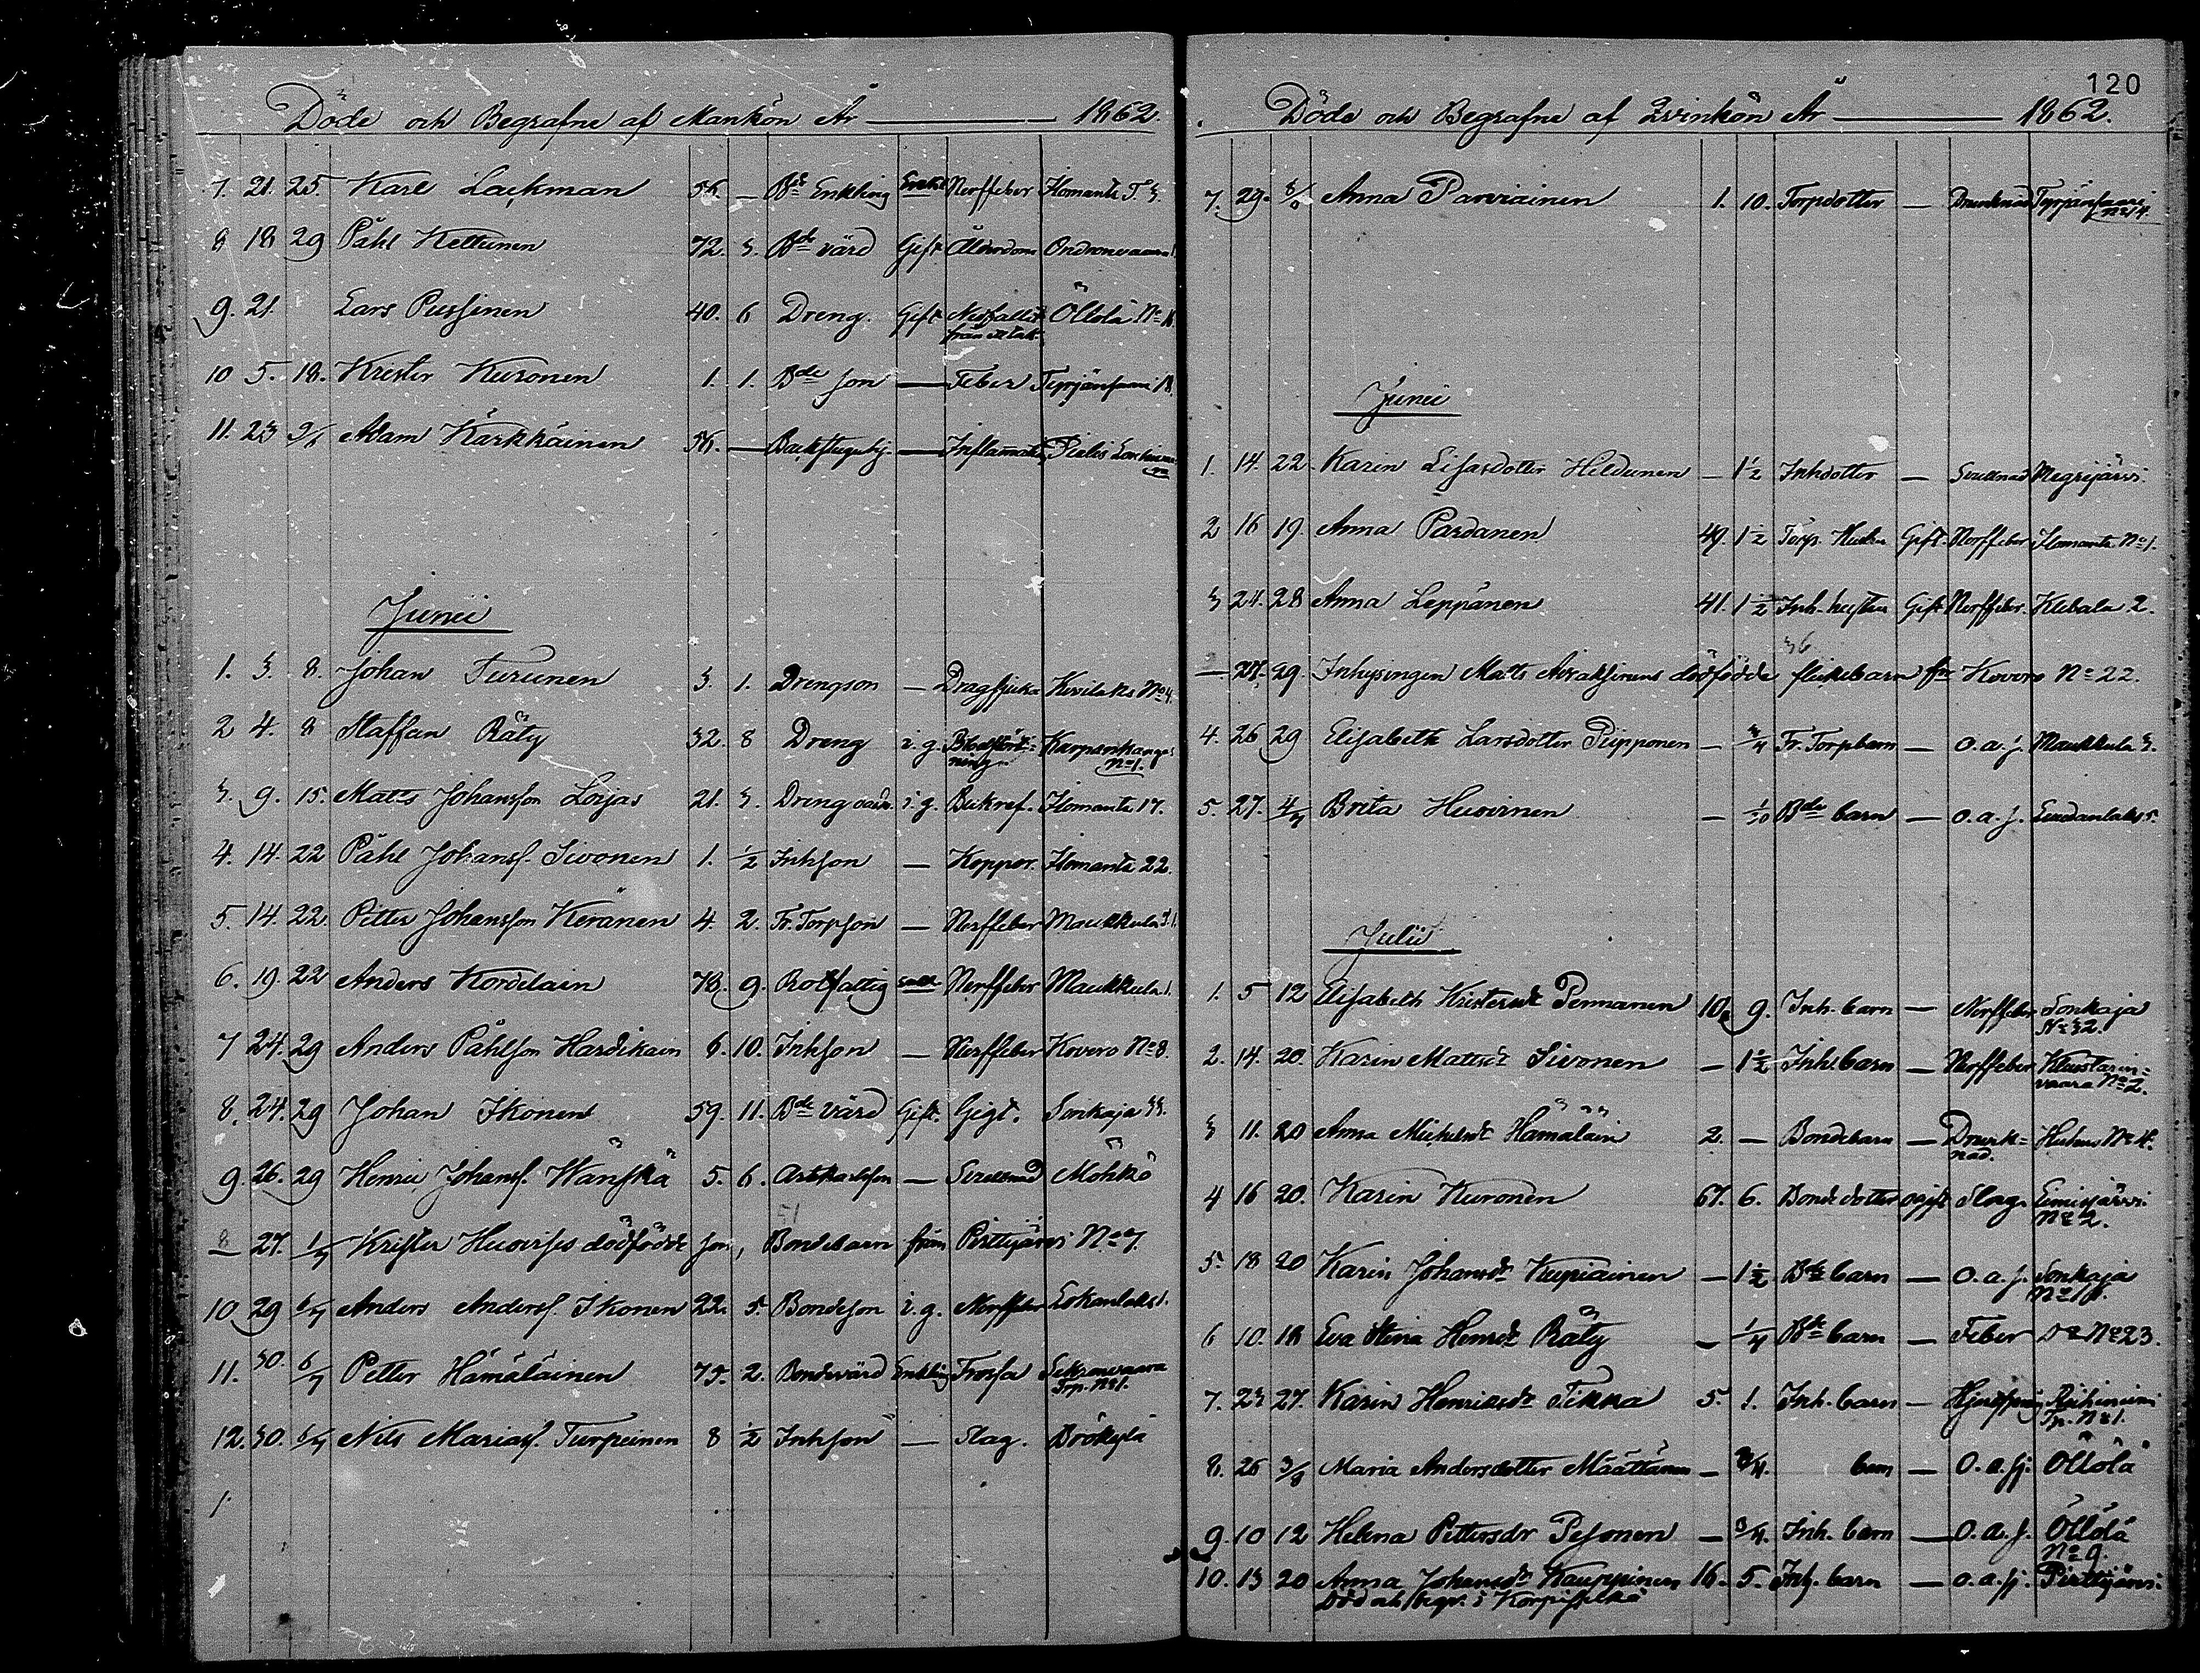 Döde och Begrafne af Mankön År 1862.
7. 21. 25. Karl Lackman 56. — Bde Enkling Enkl Nerffeber Ilomants T. 3.
8 18 29 Påhl Kettunen 72. 3. Bde värd Gift Ålderdom Ondronvaara
9. 21. Lars Pussinen 40. 6 Dreng. Gift Nedfallit från ett tak. Öllölä No
10 5. 18. Krister Kuronen 1. 1. Bde son — Feber 18.
11. 23 Adam Kärkkäinen 56. — Backstugusj. — Inflammation Pielis
Junii
1. 3. 8. Johan Turunen 3. 1. Drengson — Dragsjuka Kivilaks No 4.
2 4. 8 Staffan Räty 32. 8 Dreng i.g. Blodstörtning Karpankangas No 1.
3. 9. 15. Matts Johansson Loijas 21. 3. Dreng i.g. Bukref. Ilomants 17.
4. 14. 22 Påhl Johanss. Sivonen 1. ½ Inhson — Koppor. Ilomants 22.
5. 14. 22. Petter Johansson Keränen 4. 2. Fr. Torpson — Nerffeber Maukkula 31.
6. 19. 22 Anders Kordelain 78. 9. Rotfattig Enkl Nerffeber Maukkula 1.
7 24. 29 Anders Påhlson Hardikain 6. 10. Inhson — Nerffeber Kovero No 8.
8. 24. 29 Johan Ikonen 59. 11. Bde värd Gift. Gigt. Sonkaja 33.
9. 26. 29 Henric Johanss. Wänskä 5. 6. — Svullnad Möhkö
— 27. 1/7 Krister Huovises dödfödde son, Bondebarn från Pirttijärvi No 7.
10 29 6/7 Anders Anderss. Ikonen 22. 5. Bondeson i.g. Nerffeber Lokanlaks 1.
11. 30. 6/7 Petter Hämäläinen 75. 2. Bondevärd Enkling Frossa Trp. No 1.
12. 30. 6/7 Nils Mariass. Turpeinen 8 ½ Inhson — Slag. Brökylä
1
120
Döde och Begrafne af Qvinkön År 1862.
7. 29. 8/6 Anna Parviainen 1. 10. Torpdotter — Drunknad Tyrjänsaari No 14.
Junii
1. 14. 22. Karin Lisasdotter Hildunen — 1½ Inhdotter — Svullnad Megrijärvi.
2 16 19. Anna Pardanen 49. 1½ Torp. Hustru Gift. Nerffeber Ilomants No 1.
3 24. 28 Anna Leppänen 41. 1½ Inh. hustru Gift Nerffeber. Kivilaks 2.
36
— 27. 29. Inhysingen Matts dödfödde flickebarn frn Kovero No 22.
4. 26 29 Elisabeth Larsdotter Piipponen — 3/4 Fr. Torpbarn — o.a.s. Maukkula 3.
5. 27. 4/7 Brita Huovinen — 1/10 Bde barn — o.a.s. 5.
Julii
1. 5 12 Elisabeth Kristersdr Pennanen 10. 9. Inh. barn — Nerffeber Sonkaja No 32.
2. 14. 20. Karin Matsdr Sivonen — 1½ Inh. barn — Nerffeber Kuustarinvaara No 2.
3 11. 20 Anna Michelsdr Hämäläin 2. — Bondebarn — Drunknad. Huhus No 4.
4 16 20. Karin Kuronen 67. 6. Bonde dotter ogift Slag. No 2.
5. 18 20 Karin Johansdr Kupiainen — 1½ Bde barn — o.a.s. Sonkaja
6 10. 18 Eva Stina Henrdr Räty — 1/4 Bde barn — Feber Do No 23.
7. 23 27. Karin Henricsdr Tikka 5. 1. Inh. barn — Tp. No 1.
8. 26 3/8 Maria Andersdotter Määttänen — 3/4. barn — o.a.sj. Öllölä
9. 10 12 Helena Pettersdr Pesonen — 3/4. Inh. barn — o.a.s. Öllölä No 9.
10. 13 20 Anna Johansdr Kauppinen 16. 5. Inh. barn — o.a.sj. Pirttijärvi.
Död och begr. i Korpiselkä